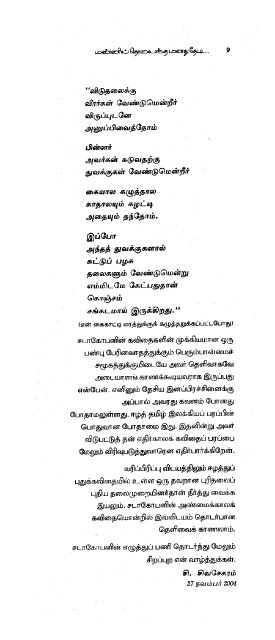 மண்ணில் தொலைந்த மனது தேடி... 9
"விடுதலைக்கு
வீரர்கள் வேண்டுமென்றீர்
விருப்புடனே
அனுப்பிவைத்தோம்
பின்னர்
அவர்கள் சுடுவதற்கு
துவக்குகள் வேண்டுமென்றீர்
கையால கழுத்தால
காதாலயும் கழட்டி
அதையும் தந்தோம்.
இப்போ
அந்தத் துவக்குகளால்
சுட்டுப் பழக
தலைகளும் வேண்டுமென்று
எம்மிடமே கேட்பதுதான்
கொஞ்சம்
சங்கடமாய் இருக்கிறது."
(என் கைகாட்டி மரத்துக்குக் கழுத்தறுக்கப்பட்டபோது)
சடாகோபனின் கவிதைகளின் முக்கியமான ஒரு
பண்பு பேரினவாதத்துக்கும் பெரும்பான்மைச்
சமூகத்துக்குமிடையே அவர் தெளிவாகவே
அடையாளங் காணக்கூடியவராக இருப்பது
என்பேன். எனினும் தேசிய இனப்பிரச்சினைக்கு
அப்பால் அவரது கவனம் போனது
போதாமலுள்ளது. ஈழத் தமிழ் இலக்கியப் பரப்பின்
பொதுவான போதாமை இது. இதனின்று அவர்
விடுபட்டுத் தன் எதிர்காலக் கவிதைப் பரப்பை
மேலும் விரிவுபடுத்துவாரென எதிர்பார்க்கிறேன்.
வரிப்பிரிப்பு விடயத்திலும் ஈழத்துப்
புதுக்கவிதையில் உள்ள ஒரு தவறான புரிதலைப்
புதிய தலைமுறையினர்தான் தீர்த்து வைக்க
இயலும். சடாகோபனின் அண்மைக்காலக்
கவிதையொன்றில் இவ்விடயம் தொடர்பான
தெளிவைக் காணலாம்.
சடாகோபனின் எழுத்துப் பணி தொடர்ந்து மேலும்
சிறப்புற என் வாழ்த்துக்கள்.
சி. சிவசேகரம்
27 நவம்பர் 2004